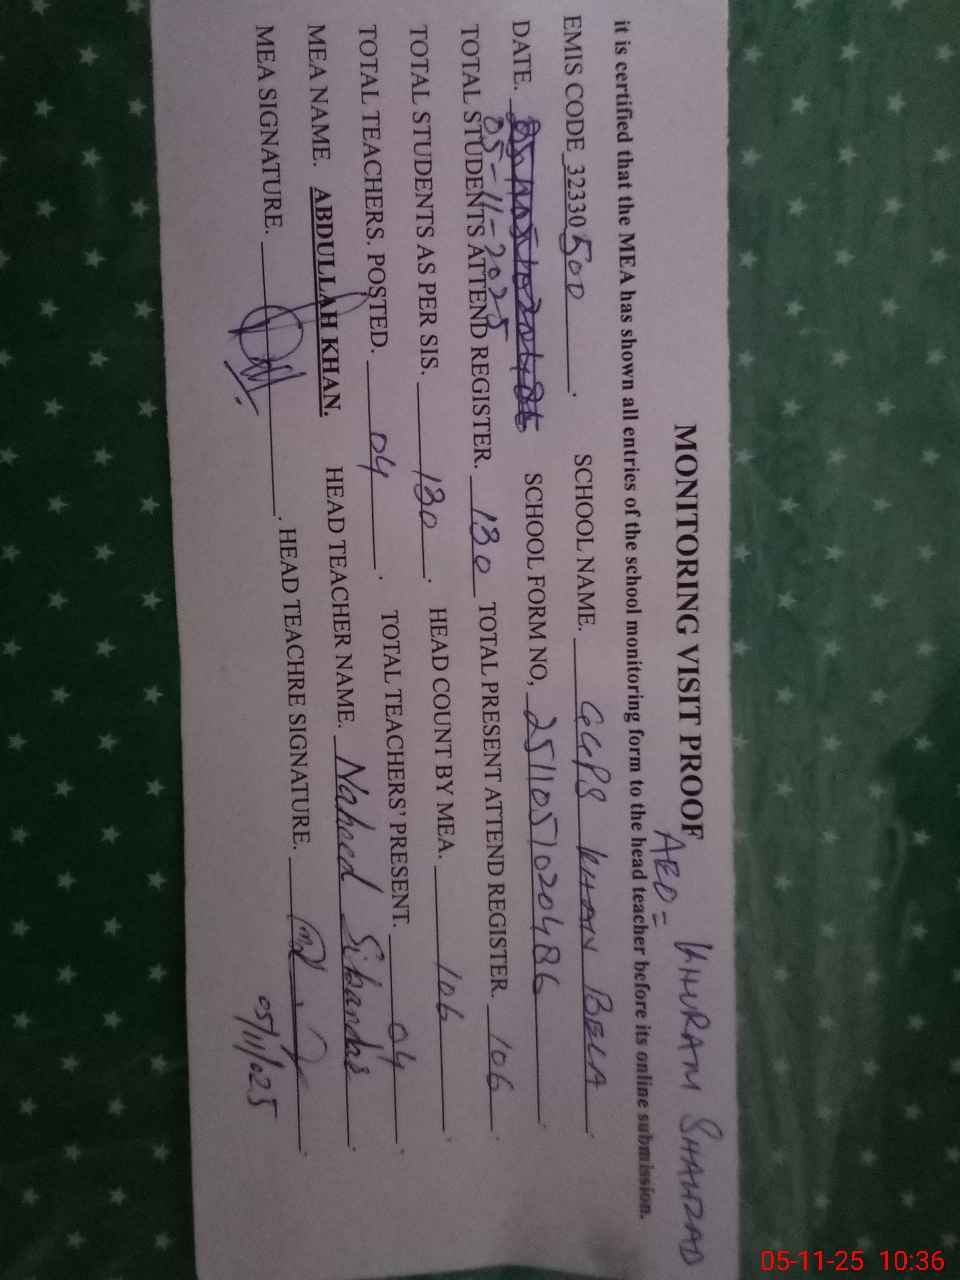 MONITORING VISIT PROOF
AEO = KHURAM SHAHZAD
it is certified that the MEA has shown all entries of the school monitoring form to the head teacher before its online submission.
EMIS CODE 32330500. SCHOOL NAME. GGPS KHAN BELA.
DATE. 05-11-2025 SCHOOL FORM NO, 2511051020486.
TOTAL STUDENTS ATTEND REGISTER. 130 TOTAL PRESENT ATTEND REGISTER. 106.
TOTAL STUDENTS AS PER SIS. 130. HEAD COUNT BY MEA. 106.
TOTAL TEACHERS. POSTED. 04. TOTAL TEACHERS' PRESENT. 04.
MEA NAME. ABDULLAH KHAN. HEAD TEACHER NAME. Naheed Sikandar.
MEA SIGNATURE. . HEAD TEACHRE SIGNATURE. .
05/11/025
05-11-25 10:36